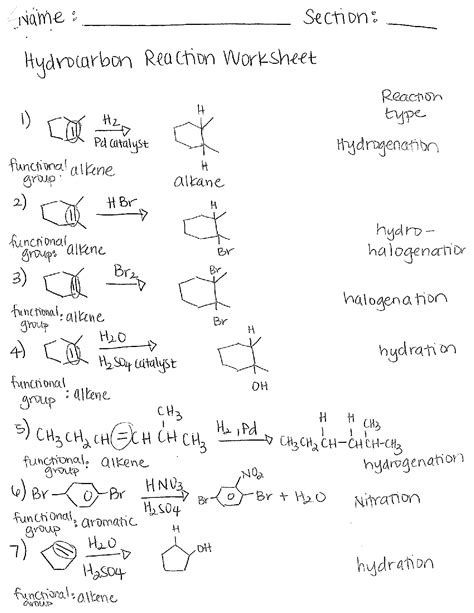 Name: Section:
Hydrocarbon Reaction Worksheet
Reaction type
1) H2 Pd catalyst H H Hydrogenation
functional group: alkene alkane
2) HBr H Br hydro-halogenation
functional group: alkene
3) Br2 Br Br halogenation
functional group: alkene
4) H2O H2SO4 catalyst H OH hydration
functional group: alkene
5) CH3CH2CH=CH CH CH3 CH3 H2, Pd CH3CH2CH-CHCH-CH3 H H CH3 hydrogenation
functional group: alkene
6) Br Br HNO3 H2SO4 Br NO2 Br + H2O Nitration
functional group: aromatic
7) H2O H2SO4 H OH hydration
functional group: alkene